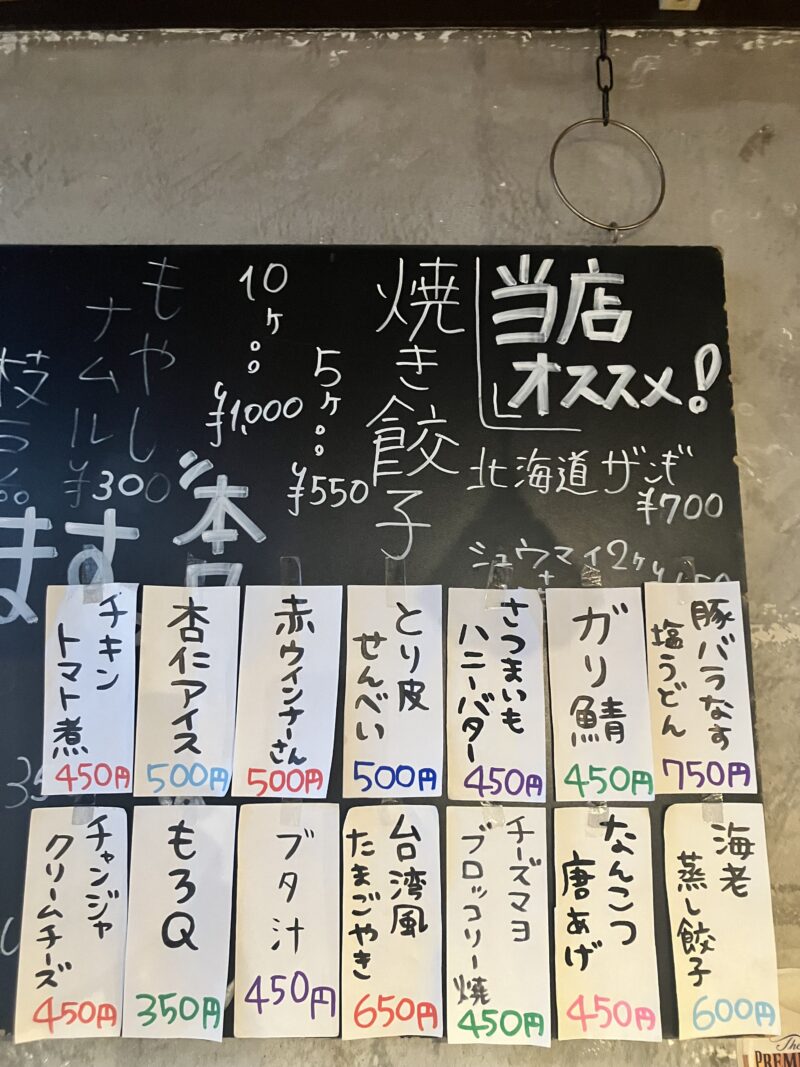 当店
オススメ!
北海道ザンギ
¥700
シュウマイ2ヶ
焼き餃子
5ヶ。。
¥550
10ヶ。。
¥1,000
本日
もやし
ナムル
¥300
ます
豚バラなす
塩うどん
750円
ガリ鯖
450円
さつまいも
ハニーバター
450円
とり皮
せんべい
500円
赤ウインナーさん
500円
杏仁アイス
500円
チキン
トマト煮
450円
海老
蒸し餃子
600円
なんこつ
唐あげ
450円
チーズマヨ
ブロッコリー焼
450円
台湾風
たまごやき
650円
ブタ汁
450円
もろQ
350円
チャンジャ
クリームチーズ
450円
The
PREM